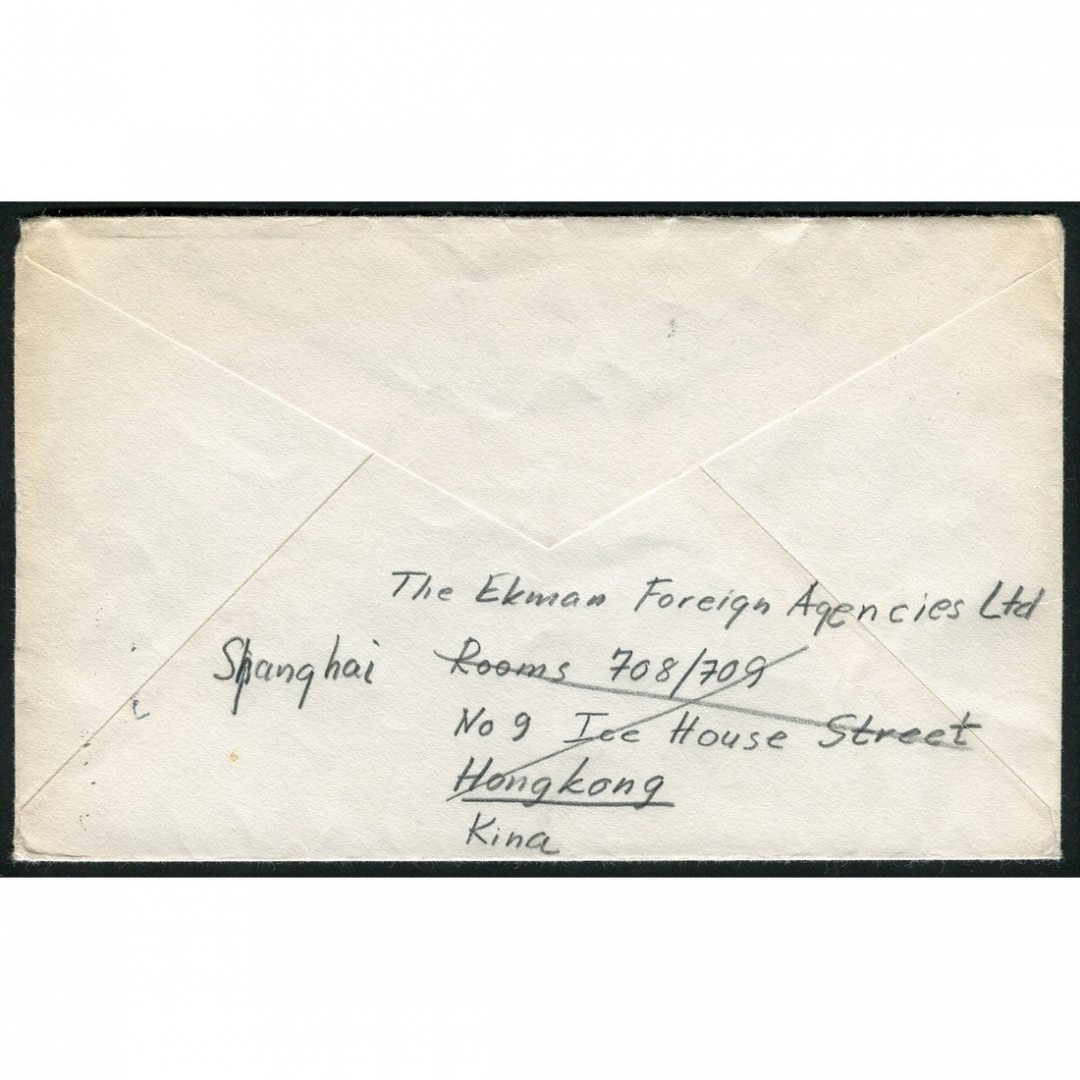 The Ekman Foreign Agencies Ltd
Shanghai Rooms 708/709
No 9 Ice House Street
Hongkong
Kina